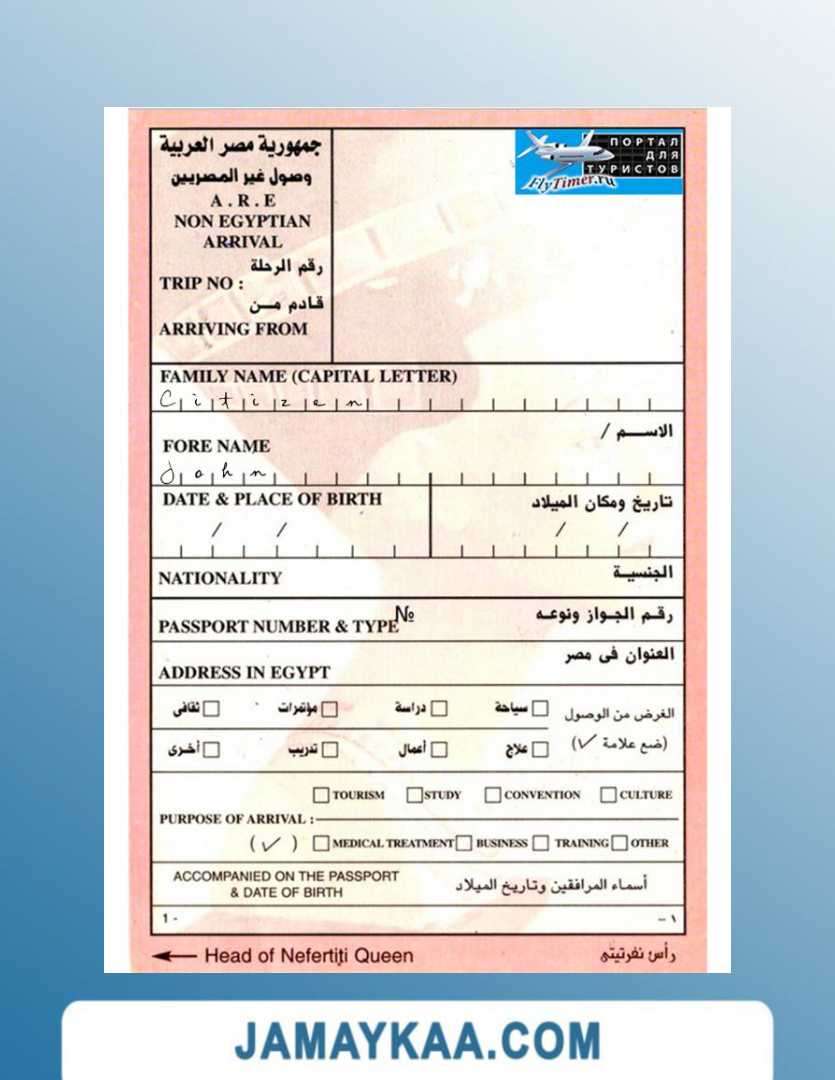 جمهورية مصر العربية
وصول غير المصريين
A . R . E
NON EGYPTIAN
ARRIVAL
رقم الرحلة
TRIP NO :
قادم مــن
ARRIVING FROM
ПОРТАЛ
ДЛЯ
ТУРИСТОВ
FlyTimer.ru
FAMILY NAME (CAPITAL LETTER)
Citizen
الاســـم /
FORE NAME
John
DATE & PLACE OF BIRTH تاريخ ومكان الميلاد
/ / / /
NATIONALITY الجنسيــة
PASSPORT NUMBER & TYPE № رقـم الجـواز ونوعـه
العنوان فى مصر
ADDRESS IN EGYPT
الغرض من الوصول □ سياحة □ دراسة □ مؤتمرات □ ثقافى
(ضع علامة ✓) □ علاج □ أعمال □ تدريب □ أخرى
□ TOURISM □ STUDY □ CONVENTION □ CULTURE
PURPOSE OF ARRIVAL :
( ✓ ) □ MEDICAL TREATMENT □ BUSINESS □ TRAINING □ OTHER
ACCOMPANIED ON THE PASSPORT
& DATE OF BIRTH
أسماء المرافقين وتاريخ الميلاد
1 - ١ --
Head of Nefertiti Queen رأس نفرتيتى
JAMAYKAA.COM